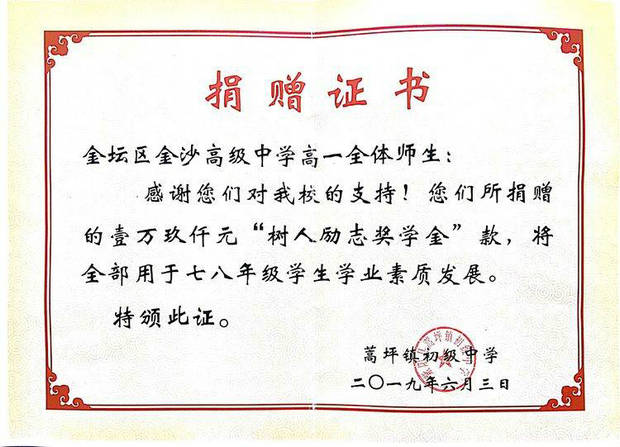 捐赠证书
金坛区金沙高级中学高一全体师生：
感谢您们对我校的支持！您们所捐赠
的壹万玖仟元“树人励志奖学金”款，将
全部用于七八年级学生学业素质发展。
特颁此证。
蒿坪镇初级中学
二〇一九年六月三日